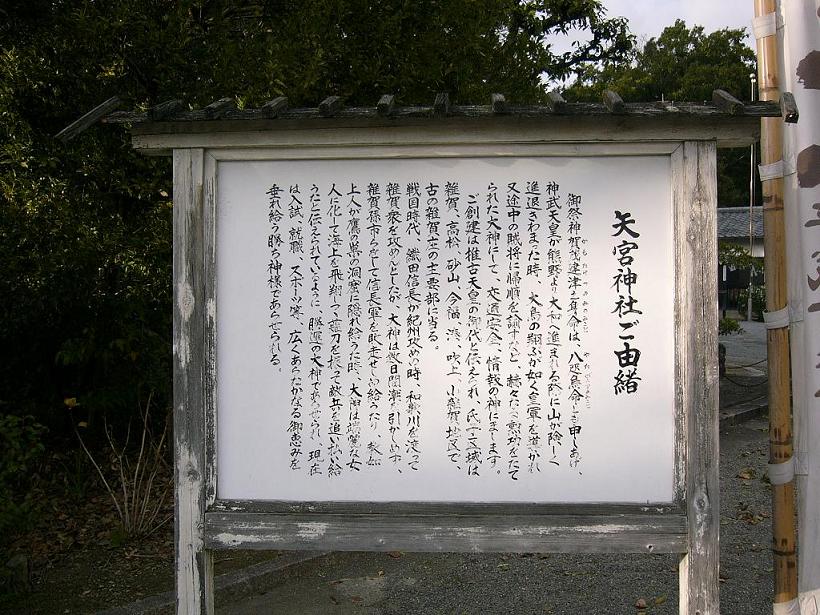 矢宮神社ご由緒
御祭神賀茂建津之身命は、八咫烏命とも申しあげ、
神武天皇が熊野より大和へ進まれる際に山が険しく
進退きわまった時、大鳥の翔ぶが如く皇軍を導かれ
又途中の賊将に帰順を諭すなど、縷々たる勲功をたて
られた大神にして、交通安全、情報の神にまします。
ご創建は推古天皇の御代と伝えられ、氏子区域は
雑賀、高松、砂山、今福、湊、吹上、小雑賀地区で、
古の雑賀庄の主要部に当る。
戦国時代、織田信長が紀州攻めの時、和歌川を渡って
雑賀衆を攻めんとしたが、大神は数日間潮を引かしめず、
雑賀孫市らをして信長軍を敗走せしめ給うたり、教如
上人が鷹の巣の洞窟に隠れ給うた時、大神は端麗な女
人に化して海上を飛翔つつ薙刀を振って敵兵を追い払い給
うたと伝えられているように、勝運の大神であらせられ、現在
は入試、就職、スポーツ等、広くあらたかなる御恵みを
垂れ給う勝ち神様であらせられる。